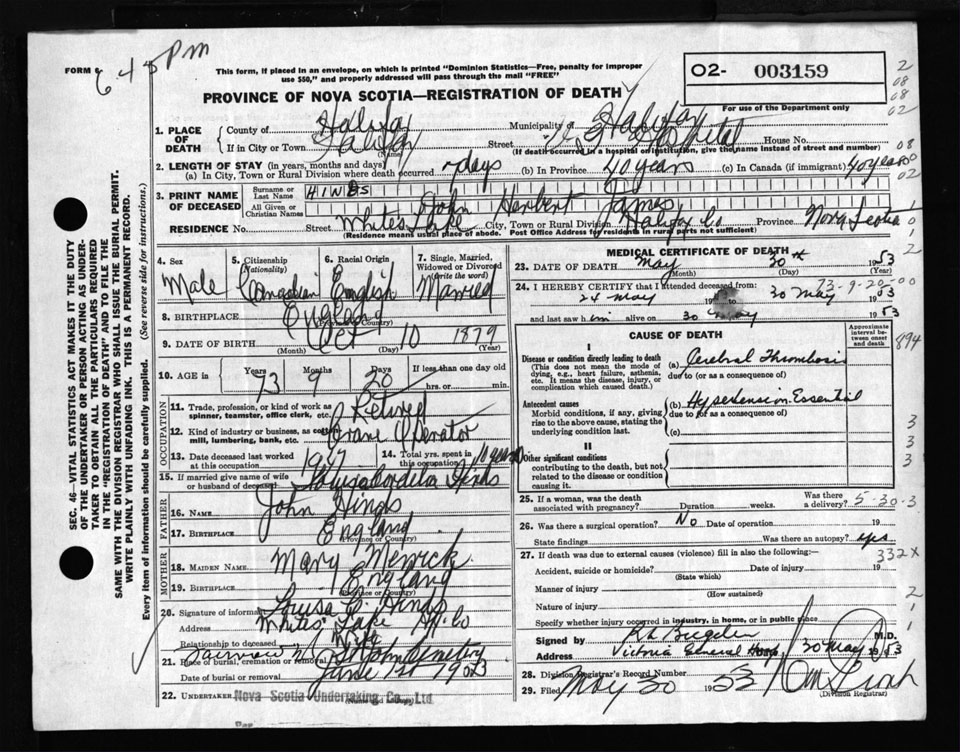 PM
FORM 6
6 45
This form, if placed in an envelope, on which is printed "Dominion Statistics—Free, penalty for improper
use $50," and properly addressed will pass through the mail "FREE"
O2- 003159
PROVINCE OF NOVA SCOTIA—REGISTRATION OF DEATH
For use of the Department only
2
08
08
02
1. PLACE OF DEATH
County of Halifax Municipality of Halifax
If in City or Town Halifax (Name) Street Hospital House No.
(If death occurred in a hospital or institution, give the name instead of street and number)
08
2. LENGTH OF STAY (in years, months and days)
(a) In City, Town or Rural Division where death occurred days (b) In Province 40 years (c) In Canada (if immigrant) 40 years
02
3. PRINT NAME OF DECEASED
Surname or Last Name HINDS
All Given or Christian Names John Herbert James
RESIDENCE No. Street Whites Lake City, Town or Rural Division Halifax Co Province Nova Scotia
(Residence means usual place of abode. Post Office Address for residents in rural parts not sufficient)
SEC. 46—VITAL STATISTICS ACT MAKES IT THE DUTY
OF THE UNDERTAKER OR PERSON ACTING AS UNDER-
TAKER TO OBTAIN ALL THE PARTICULARS REQUIRED
IN THE "REGISTRATION OF DEATH" AND TO FILE THE
SAME WITH THE DIVISION REGISTRAR WHO SHALL ISSUE THE BURIAL PERMIT.
WRITE PLAINLY WITH UNFADING INK. THIS IS A PERMANENT RECORD.
Every item of information should be carefully supplied. (See reverse side for instructions.)
4. Sex
Male
5. Citizenship (Nationality)
Canadian
6. Racial Origin
English
7. Single, Married, Widowed or Divorced (Write the word)
Married
8. BIRTHPLACE England
(Province or Country)
9. DATE OF BIRTH Oct 10 1879
(Month) (Day) (Year)
10. AGE in Years 73 Months 9 Days 20 If less than one day old
hrs. or min.
OCCUPATION
11. Trade, profession, or kind of work as
spinner, teamster, office clerk, etc. Retired
12. Kind of industry or business, as cotton
mill, lumbering, bank, etc. Crane Operator
13. Date deceased last worked
at this occupation 1947
14. Total yrs. spent in
this occupation 10 years
15. If married give name of wife
or husband of deceased Louisa Cordelia Hinds
FATHER
16. NAME John Hinds
17. BIRTHPLACE England
(Province or Country)
MOTHER
18. MAIDEN NAME Mary Merrick
19. BIRTHPLACE England
(Province or Country)
20. Signature of informant Louisa C. Hinds
Address Whites Lake Hx. Co
Relationship to deceased Wife
21. Place of burial, cremation or removal Fairview N.S. St John Cemetery
Date of burial or removal June 1st 1953
22. UNDERTAKER Nova Scotia Undertaking Co., Ltd
Per
MEDICAL CERTIFICATE OF DEATH
23. DATE OF DEATH May 30 1953
(Month) (Day) (Year)
73-9-20-00
24. I HEREBY CERTIFY that I attended deceased from:
24 May 19 to 30 May 1953
and last saw him alive on 30 May 1953
CAUSE OF DEATH
Approximate interval between onset and death
894
I
Disease or condition directly leading to death
(This does not mean the mode of
dying, e.g., heart failure, asthenia,
etc. It means the disease, injury, or
complication which caused death.)
(a) Cerebral Thrombosis
due to (or as a consequence of)
Antecedent causes
Morbid conditions, if any, giving
rise to the above cause, stating the
underlying condition last.
(b) Hypertension Essential
due to (or as a consequence of)
(c)
II
Other significant conditions
contributing to the death, but not
related to the disease or condition
causing it.
3
3
3
25. If a woman, was the death
associated with pregnancy? Duration weeks. Was there a delivery? 5-30-3
26. Was there a surgical operation? No Date of operation 19
State findings Was there an autopsy? yes
332X
27. If death was due to external causes (violence) fill in also the following:—
Accident, suicide or homicide? Date of injury 19
(State which)
Manner of injury
(How sustained)
Nature of injury
2
1
Specify whether injury occurred in industry, in home, or in public place
Signed by M.D.
Address Victoria General Hosp 30 May 1953
28. Division Registrar's Record Number
29. Filed May 30 1953
(Division Registrar)